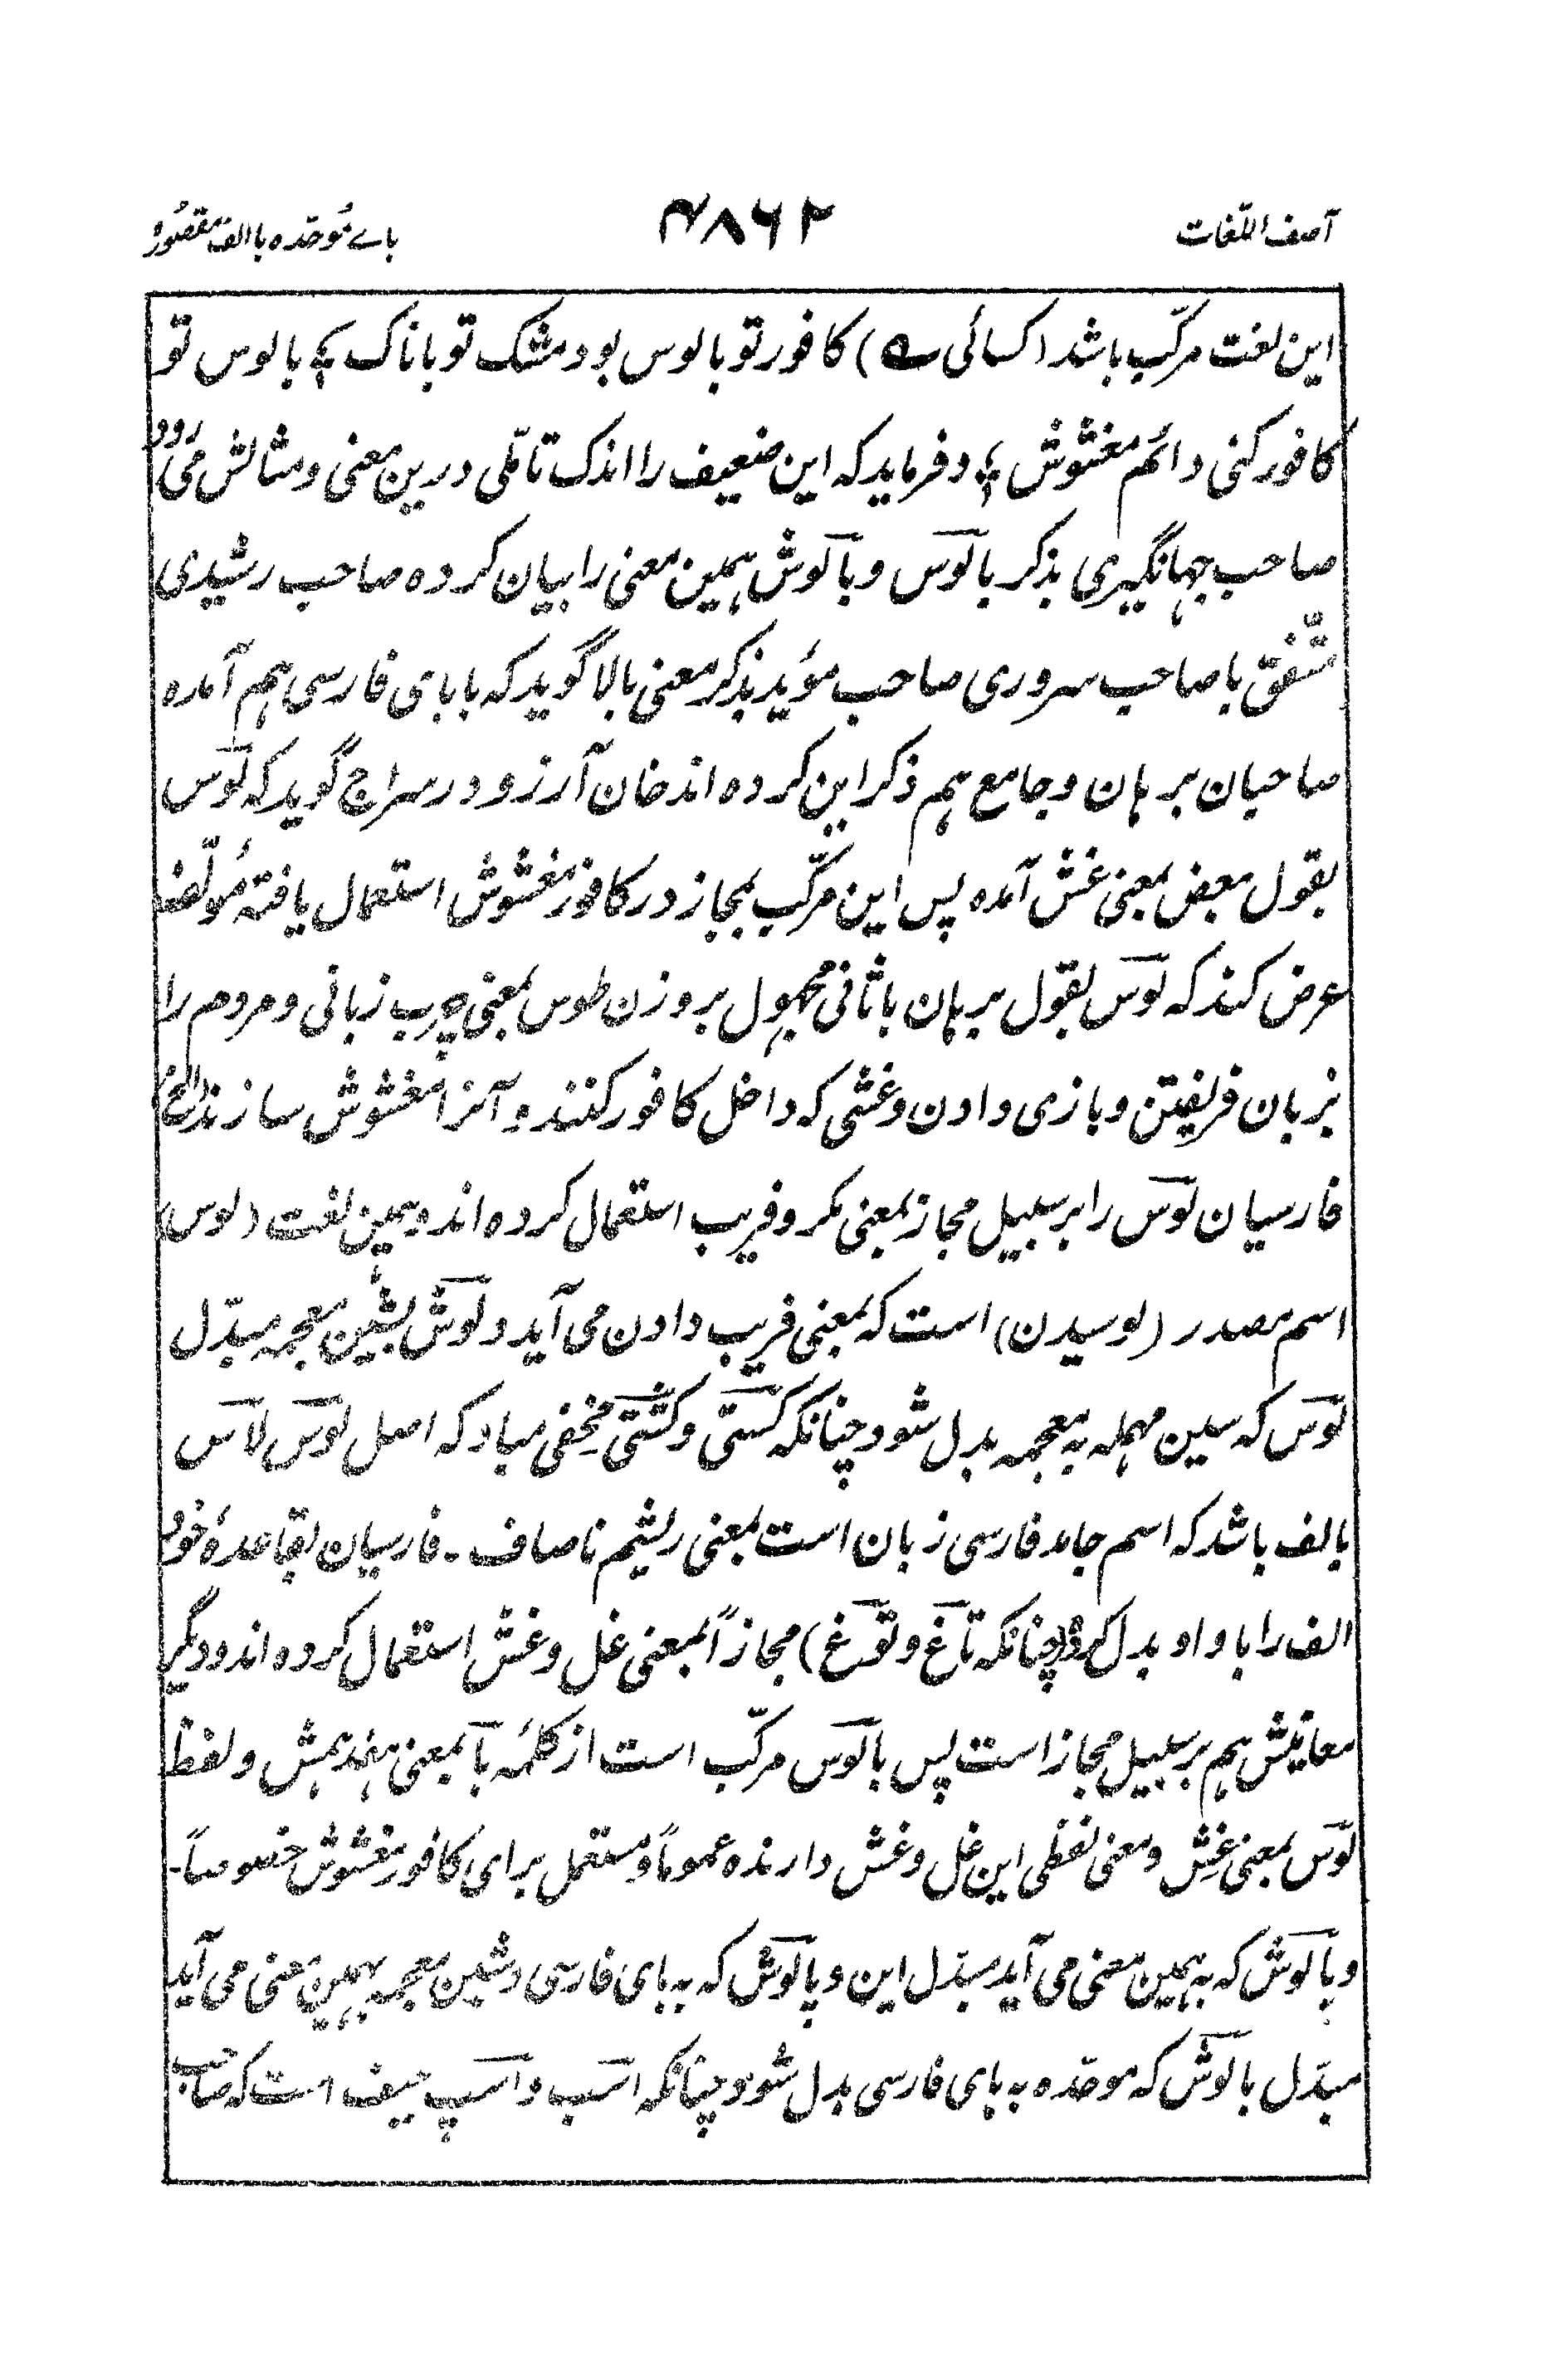 آصف اللّغات
۴۸۶۲
باے مُوحّدہ با الف مقصُورہ
این لغت مرکّب باشد (کسائی ؎) کافور تو بالوس بود مشک تو باناک ؛ بالوس تو
کافور کنی دائم مغشوش ؛ و فرماید که این ضعیف را اندک تامّلی درین معنی و مثالش می رود
صاحب جهانگیری بذکر بالوس و بالوش همین معنی را بیان کرده صاحب رشیدی
متّفق با صاحب سروری صاحب مؤید بذکر معنی بالا گوید که با بای فارسی هم آمده
صاحبان برهان و جامع هم ذکر این کرده اند خان آرزو در سراج گوید که لوس
بقول بعض بمعنی غش آمده پس این مرکّب بمجاز در کافور مغشوش استعمال یافتہ مُولّف
عرض کند که لوس بقول برهان باثانی مجهول بر وزن طوس بمعنی چرب زبانی و مردم را
بزبان فریفتن و بازی دادن و غشی که داخل کافور کنند و آنرا مغشوش سازند الخ
فارسیان لوس را بر سبیل مجاز بمعنی مکر و فریب استعمال کرده اند و همین لغت (لوس)
اسم مصدر (لوسیدن) است که بمعنی فریب دادن می آید و لوش بشین معجمه مبدّل
لوس که سین مهمله به معجمه بدل شود چنانکه کستی و کشتی مخفی مباد که اصل لوس لاس
بالف باشد که اسم جامد فارسی زبان است بمعنی ریشم ناصاف ۔ فارسیان بقاعدۂ خود
الف را با واو بدل کرده (چنانکه تاغ و توغ) مجازاً بمعنی غل و غش استعمال کرده اند و دیگر
معانیش هم بر سبیل مجاز است پس بالوس مرکّب است از کلمۂ با بمعنی خودش و لفظ
لوس بمعنی غِش و معنی لفظی این غل و غش دارنده عموماً و مستعمل برای کافور مغشوش خصوصاً۔
و بالوش که به همین معنی می آید مبدّل این و پالوش که به بای فارسی و شین معجمه بهمین معنی می آید
مبدّل بالوش که موحّده به بای فارسی بدل شود چنانکه اسب و اسپ حیف است که صاحب